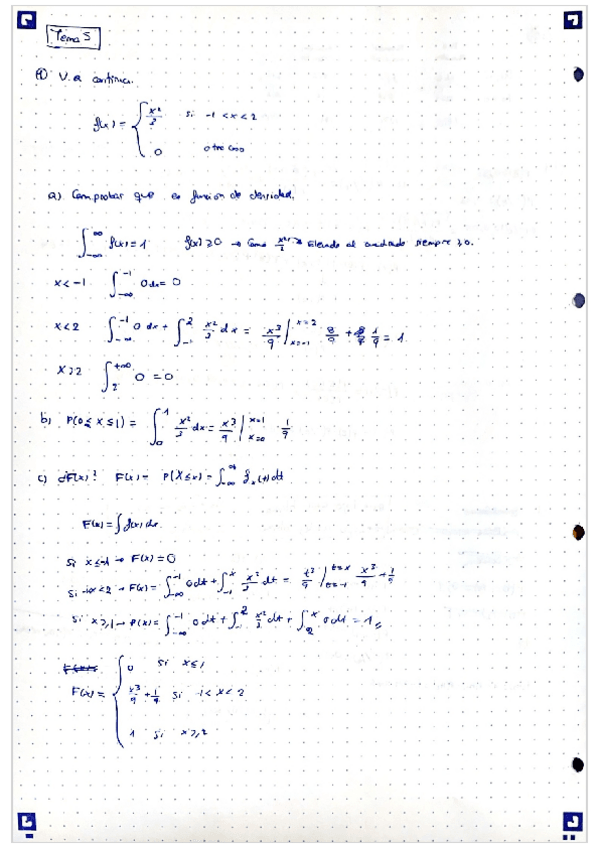 Tema 5
① V.a continua.
f(x) = { x²/3 si -1 < x < 2
0 otro caso
a) Comprobar que es función de densidad.
∫_{-∞}^{∞} f(x) = 1 f(x) ≥ 0 → Como x²/3 → elevado al cuadrado siempre ≥ 0.
x < -1 ∫_{-∞}^{-1} 0 dx = 0
x < 2 ∫_{-∞}^{-1} 0 dx + ∫_{-1}^{2} x²/3 dx = x³/9 |_{x=-1}^{x=2} 8/9 + 1/9 = 1
x ≥ 2 ∫_{2}^{+∞} 0 = 0
b) P(0 ≤ X ≤ 1) = ∫_{0}^{1} x²/3 dx = x³/9 |_{x=0}^{x=1} 1/9
c) ¿F(x)? F(x) = P(X ≤ x) = ∫_{-∞}^{x} f_x(t) dt
F(x) = ∫ f(x) dx
Si x ≤ -1 → F(x) = 0
Si -1 < x < 2 → F(x) = ∫_{-∞}^{-1} 0 dt + ∫_{-1}^{x} x²/3 dt = t³/9 |_{t=-1}^{t=x} x³/9 + 1/9
Si x ≥ → F(x) = ∫_{-∞}^{-1} 0 dt + ∫_{-1}^{2} x²/3 dt + ∫_{2}^{x} 0 dt = 1
F(x) = { 0 si x ≤ 1
x³/9 + 1/9 si -1 < x < 2
1 si x ≥ 2